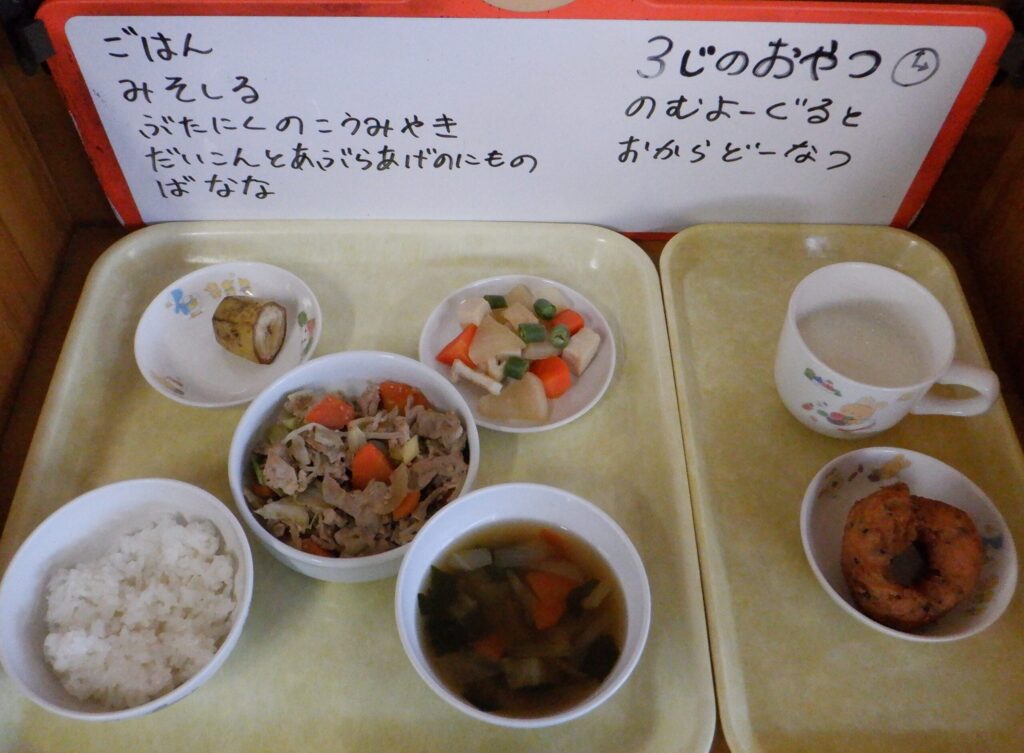 ごはん
みそしる
ぶたにくのこうみやき
だいこんとあぶらあげのにもの
ばなな
3じのおやつ
のむよーぐると
おからどーなつ